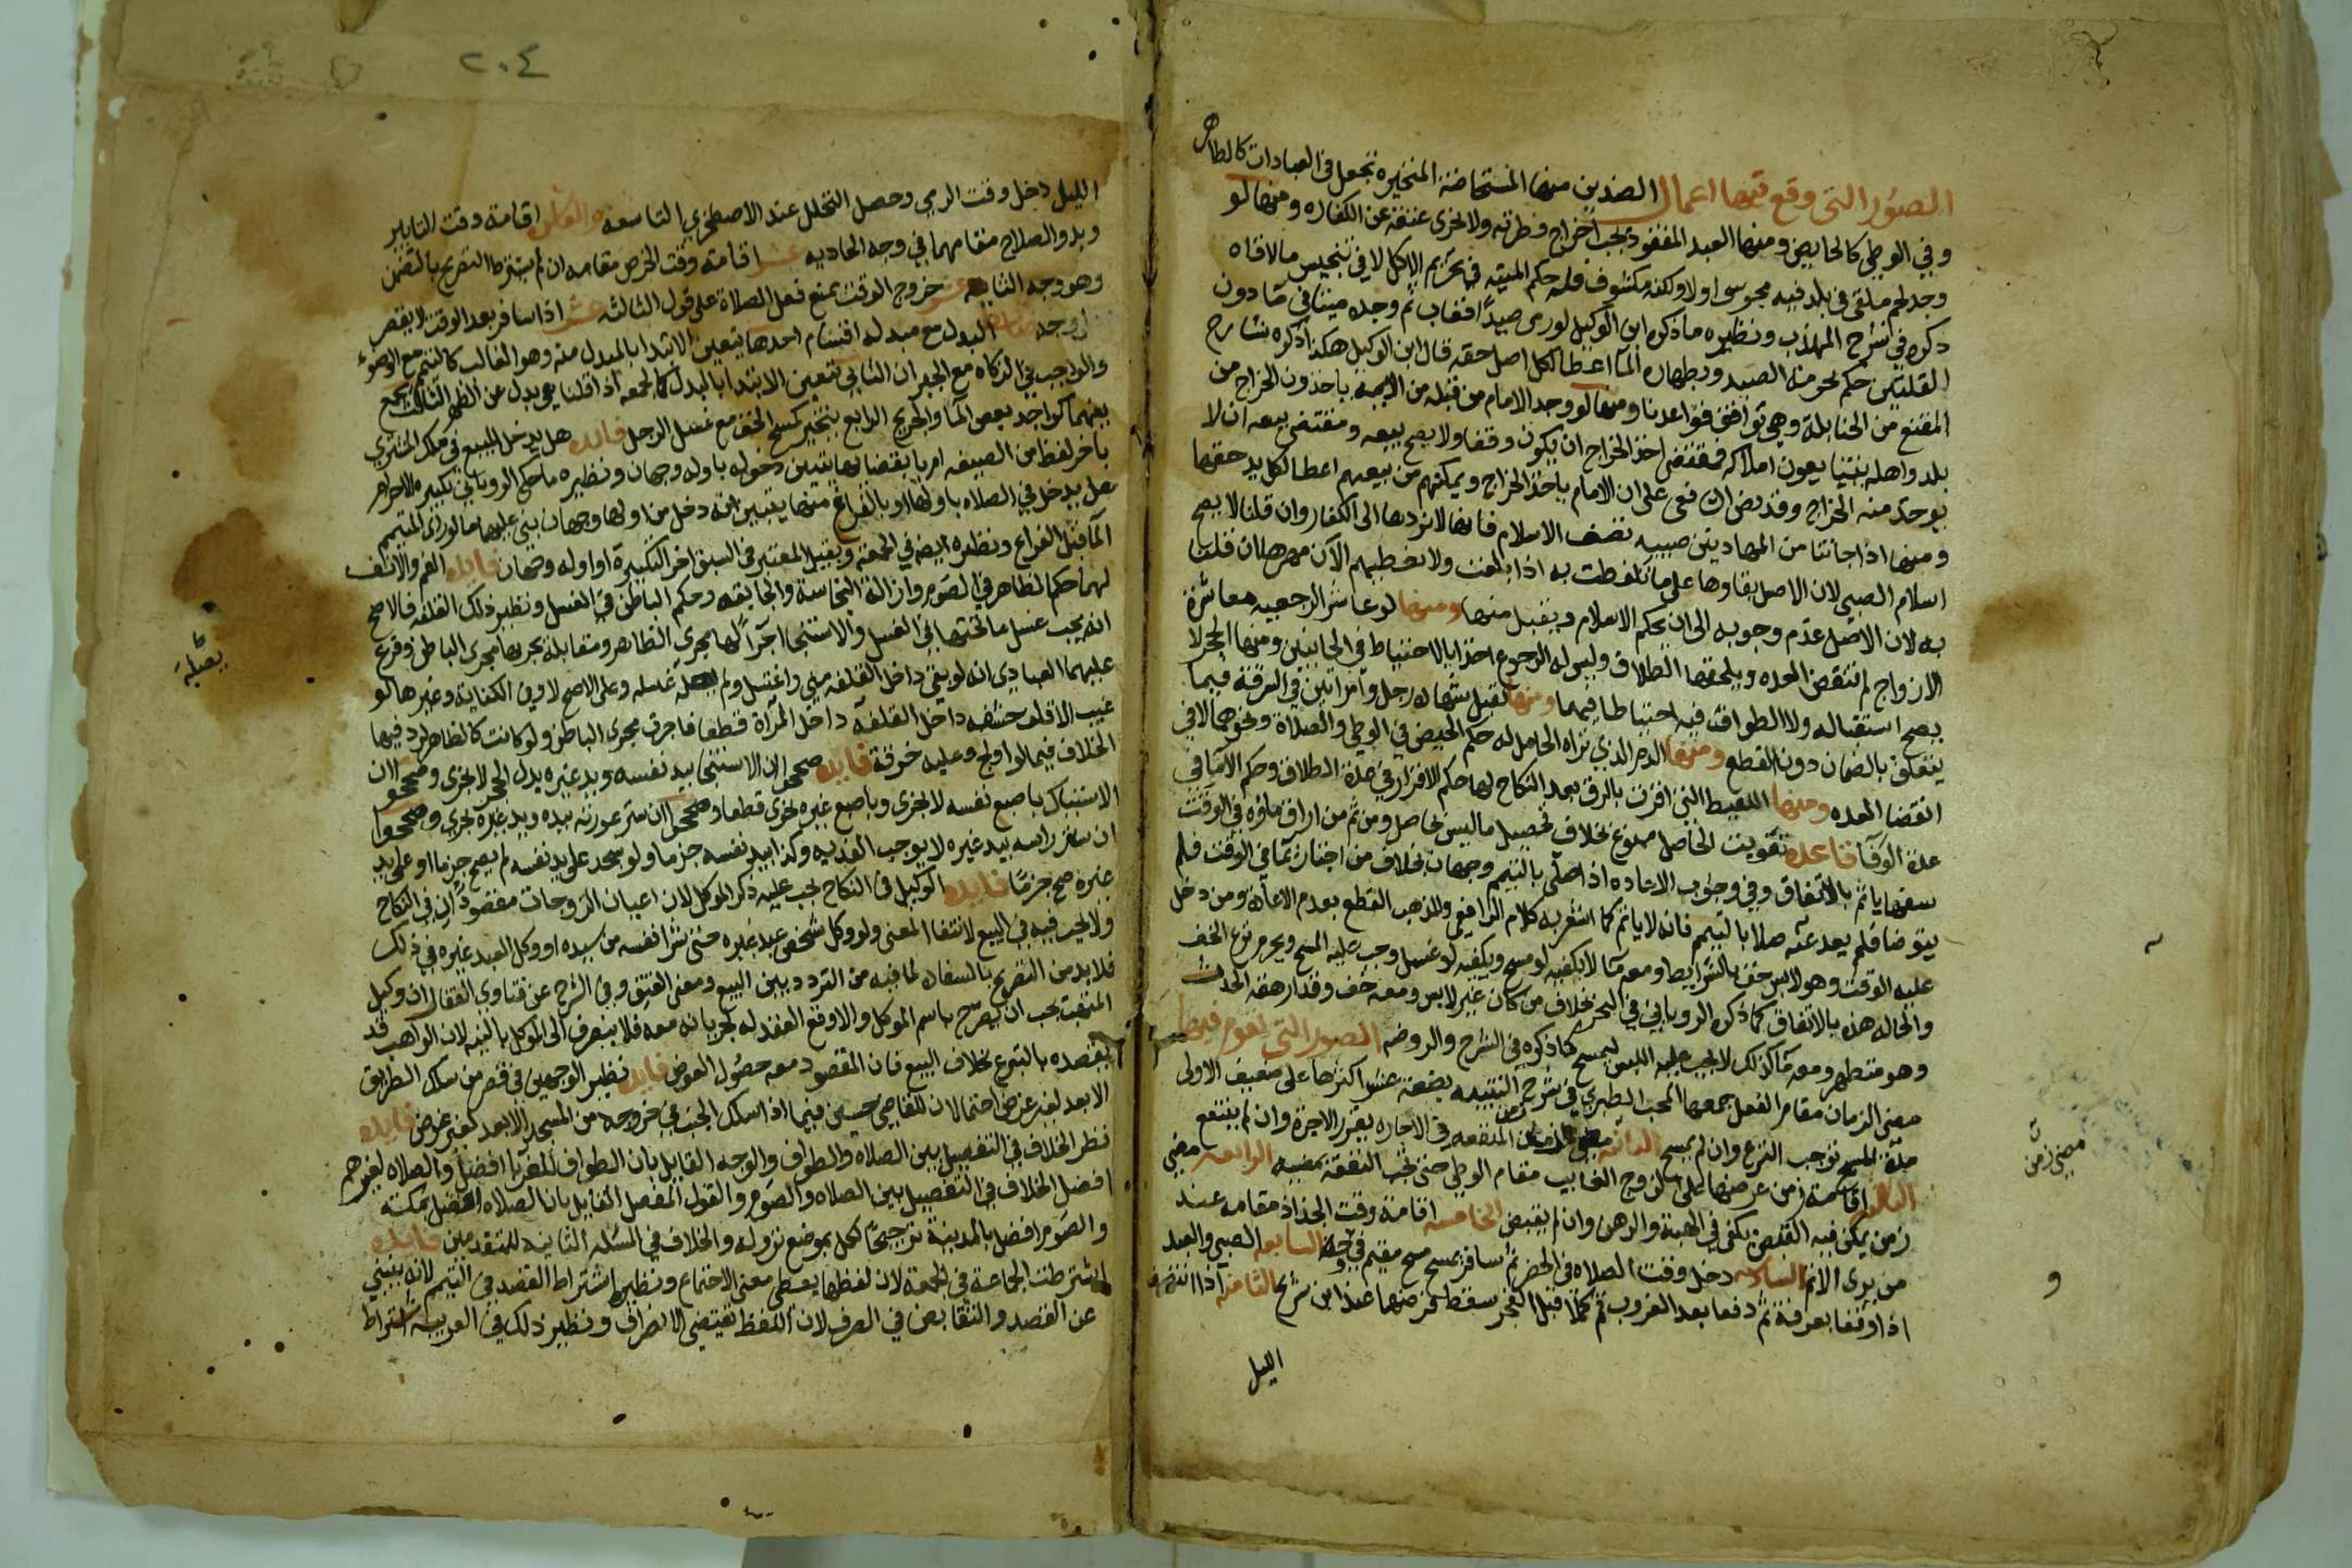 الصور التي وقع فيها اعمال الضدين منها المستحاضة المتحيرة تجعل في العبادات كالطاهر
وفي الوطي كالحايض ومنها العبد المفقود يجب اخراج فطرته ولا يجزى عتقه عن الكفاره ومنها لو
وجد لحم ملقى في بلد فيه مجوسى اولا ولكنه مكشوف فله حكم الميتة في تحريم الاكل لا في تنجيس ما لاقاه
ذكره في شرح المهذب ونظيره ما ذكره ابن الوكيل لو رمى صيدا فغاب ثم وجده ميتا في ما دون
القلتين حكم بحرمة الصيد وبطهارة الما اعطا لكل اصل حقه قال ابن الوكيل هكذا ذكره شارح
المقنع من الحنابلة وهي توافق قواعدنا ومنها لو وجد الامام من قبله من الايمة ياخذون الخراج من
بلد واهله يتبايعون املاكه فمقتضى اخذ الخراج ان يكون وقفا ولا يصح بيعه ومقتضى بيعه ان لا
يوخذ منه الخراج وقد نص الشافعي على ان الامام ياخذ الخراج ويمكنهم من بيعهم اعطا لكل يد حقها
ومنها اذا جاتنا من المهادنين صبية تصف الاسلام فانها لا نردها الى الكفار وان قلنا لا يصح
اسلام الصبي لان الاصل بقاوها على ما تلفظت به اذا بلغت ولا نعطيهم الان مهرها ان قلنا
به لان الاصل عدم وجوبه الى ان يحكم الاسلام ويقبل منها ومنها لو عاشر الرجعيه معاشرة
الازواج لم تنقض العده ويلحقها الطلاق وليس له الرجوع اخذا بالاحتياط في الجانبين ومنها الحجر لا
يصح استقباله ولا الطواف فيه احتياطا فيهما ومنها تقبل شهاده رجل وامراتين في السرقة فيما
يتعلق بالضمان دون القطع ومنها الدم الذي تراه الحامل له حكم الحيض في الوطي والصلاة ونحوهما لا في
انقضا العده ومنها اللقيط التي اقرت بالرق بعد النكاح لها حكم الاقرار في عدة الطلاق وحكم الاما في
عدة الوفاة قاعدة تفويت الحاصل ممنوع بخلاف تحصيل ما ليس بحاصل ومن ثم من اراق ماوه في الوقت
سفها ياثم بالاتفاق وفي وجوب الاعاده اذا صلى بالتيمم وجهان بخلاف من اجتاز بما في الوقت فلم
يتوضا فلم يعد عنه صلا بالتيمم فانه لا ياثم كما اشعر به كلام الرافعي والمذهب القطع بعدم الاعادة ومن دخل
عليه الوقت وهو لابس خف بالشرايط ومعه ما لا يكفيه لو مسح ويكفيه لو غسل وجب عليه المسح ويحرم نزع الخف
والحاله هذه بالاتفاق كما ذكره الروياني في البحر بخلاف من كان غير لابس ومعه خف وقد ارهقه الحدث
وهو متطهر ومعه ما كذلك لا يجب عليه اللبس ليمسح كما ذكره في الشرح والروضه الصور التي يقوم فيها
مضى الزمان مقام الفعل جمعها المحب الطبري في شرح التنبيه بضعة عشر اكثرها على ضعيف الاولى
مدة المسح توجب النزع وان لم يمسح الثانية المنفعه في الاجاره يقرر الاجرة وان لم ينتفع
الثالثه اقامة زمن عرضها على الزوج الغايب مقام الوطي حتى تجب النفقة بمضيه الرابعه مضي
زمن يمكن فيه القبض يكفي في الهبة والرهن وان لم يقبض الخامسه اقامة وقت الجذاذ مقامه عند
من يرى الاثم السادسه دخل وقت الصلاه في الحضر ثم سافر يمسح مسح مقيم في وجه السابعه الصبي والعبد
اذا وقفا بعرفة ثم دفعا بعد الغروب ثم كملا قبل الفجر سقط فرضهما عند ابن شريح الثامنه اذا انتصف
الليل
مضي زمن
و
٢٠٤
الليل دخل وقت الرمي وحصل التحلل عند الاصطخري التاسعه والعاشره اقامة وقت التابير
وبدو الصلاح مقامهما في وجه الحاديه عشر اقامة وقت الخرص مقامه ان لم يشترط التصريح بالتضمن
وهو وجه الثانيه عشر خروج الوقت يمنع فعل الصلاة على قول الثالثه عشر اذا سافر بعد الوقت لا يقصر
لوجه ضابط البدل مع مبدله اقسام احدها يتعين الابتدا بالمبدل منه وهو الغالب كالتيمم مع الوضوء
والواجب في الزكاه مع الجبران الثاني يتعين الابتدا بالبدل كالجمعه اذا قلنا هي بدل عن الظهر الثالث يجمع
بينهما كواجد بعض الما والجريح الرابع يتخير كمسح الخف مع غسل الرجل فايده هل يدخل المبيع في ملك المشتري
باخر لفظ من الصيغه ام بانقضايها يتبين دخوله باوله وجهان ونظيره ما حكي الروياني في تكبيرة الاحرام
هل يدخل في الصلاه باولها او بالفراغ منها يتبين انه دخل من اولها وجهان بنى عليهما ما لو راى المتيمم
الما قبل الفراغ ونظيره ايضا في الجمعه وقيل المعتبر في السبق اخر التكبيرة او اوله وجهان فايده الفم والانف
لهما حكم الظاهر في الصوم وازالة النجاسة والجايفه وحكم الباطن في الغسل ونظير ذلك القلفه فالاصح
انه يجب غسل ما تحتها في الغسل والاستنجا اجرآ لها مجرى الظاهر ومقابله يجريها مجرى الباطن وفرع
عليهما العبادي انه لو بقي داخل القلفه مني واغتسل ولم يغسله غسله وعلى الاصح لا وفي الكفاية وغيرها لو
غيب الاقلف حشفه داخل القلفة داخل المرأة قطعا فاجرى مجرى الباطن ولو كانت كالظاهر لرد فيها
الخلاف فيما لو اولج وعليه خرقة فايده صححوا ان الاستنجا بيد نفسه وبيد غيره بدل الحجر لا يجزى وصححوا ان
الاستياك باصبع نفسه لا يجزى وباصبع غيره يجزى قطعا وصححوا ان ستر عورته بيده وبيد غيره يجزي وصححوا
ان ستر راسه بيد غيره لا يوجب الفديه وكذا بيد نفسه جزما ولو سجد على يد نفسه لم يصح جزما او على يد
غيره صح جزما فايده الوكيل في النكاح يجب عليه ذكر الموكل لان اعيان الزوجات مقصودان في النكاح
ولا يجب فيه في البيع لانتفا المعنى ولو وكل شخص عبد غيره حتى شرا نفسه من سيده او وكل العبد غيره في ذلك
فلا بد من التصريح بالسفاره لما فيه من التردد بين البيع ومعنى العتق وفي الشرح عن فتاوي القفال ان وكيل
المتهب يجب ان يصرح باسم الموكل والا وقع العقد له لجريانه معه فلا ينصرف الى الموكل بالنيه لان الواهب قد
يقصده بالتبرع بخلاف البيع فان المقصود معه حصول العوض فايده نظير الوجهين في قصر من سلك الطريق
الابعد لغير غرض احتمالان للقاضي حسين فيما اذا سلك الجنب في خروجه من المسجد الابعد لغير غرض فايده
نظر الخلاف في التفصيل بين الصلاة والطواف والوجه القايل بان الطواف للغربا افضل والصلاه لغيرهم
افضل الخلاف في التفصيل بين الصلاه والصوم والقول المفصل القايل بان الصلاه افضل بمكة
والصوم افضل بالمدينة ترجيحا لكل بموضع نزوله والخلاف في المسئله الثانيه للمتقدمين فايده
اشترطت الجماعة في الجمعة لان لفظها يعطى معنى الاجتماع ونظيره اشتراط القصد في التيمم لانه ينبني
عن القصد والتقابض في الصرف لان اللفظ يقتضي الانصراف ونظير ذلك في العربيه اشتراط